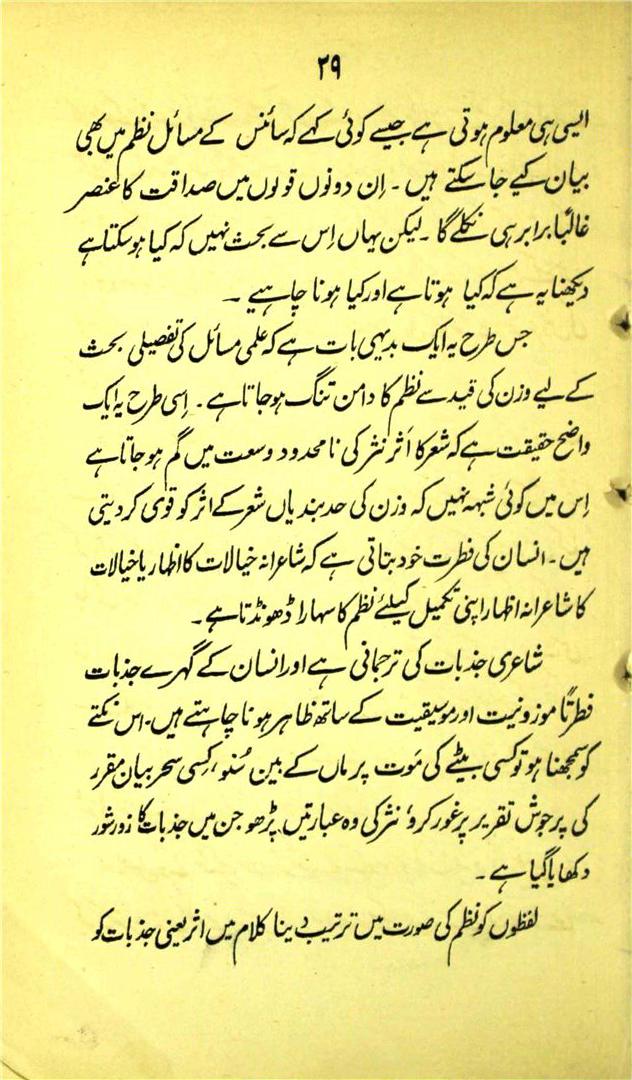 ۲۹
ایسی ہی معلوم ہوتی ہے جیسے کوئی کہے کہ سائنس کے مسائل نظم میں بھی
بیان کیے جا سکتے ہیں ۔ اِن دونوں قولوں میں صداقت کا عنصر
غالبًا برابر ہی نکلے گا ۔ لیکن یہاں اِس سے بحث نہیں کہ کیا ہو سکتا ہے
دیکھنا یہ ہے کہ کیا ہوتا ہے اور کیا ہونا چاہیے ۔
جس طرح یہ ایک بدیہی بات ہے کہ علمی مسائل کی تفصیلی بحث
کے لیے وزن کی قید سے نظم کا دامن تنگ ہو جاتا ہے ۔ اِسی طرح یہ ایک
واضح حقیقت ہے کہ شعر کا اَثر نثر کی نامحدود وسعت میں گم ہو جاتا ہے
اِس میں کوئی شبہہ نہیں کہ وزن کی حد بندیاں شعر کے اثر کو قوی کر دیتی
ہیں ۔ انسان کی فطرت خود بتاتی ہے کہ شاعرانہ خیالات کا اظہار یا خیالات
کا شاعرانہ اظہار اپنی تکمیل کیلئے نظم کا سہارا ڈھونڈتا ہے ۔
شاعری جذبات کی ترجمانی ہے اور انسان کے گہرے جذبات
فطرتًا موزونیت اور موسیقیت کے ساتھ ظاہر ہونا چاہتے ہیں ۔ اس نکتے
کو سمجھنا ہو تو کسی بیٹے کی مَوت پر ماں کے بین سُنو ، کِسی سحر بیان مقرر
کی پرجوش تقریر پر غور کرو ، نثر کی وہ عبارتیں پڑھو جن میں جذبات کا زور شور
دکھایا گیا ہے ۔
لفظوں کو نظم کی صورت میں ترتیب دینا کلام میں اثر یعنی جذبات کو